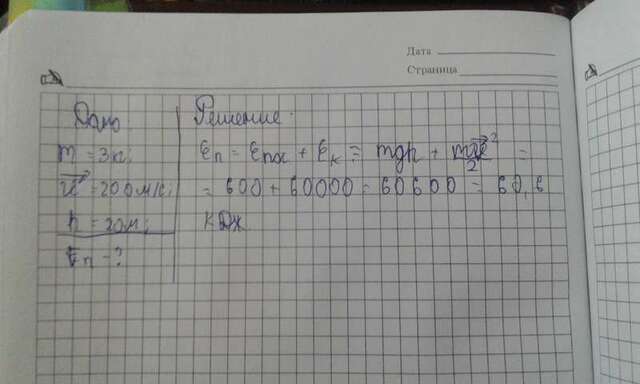 Дата
Страница
Дано
m = 3кг;
v⃗ = 200м/с;
h = 20м;
Eп - ?
Решение.
Eп = Eпот + Eк = mgh + mv⃗²/2 =
= 600 + 60000 = 60600 = 60,6
кДж